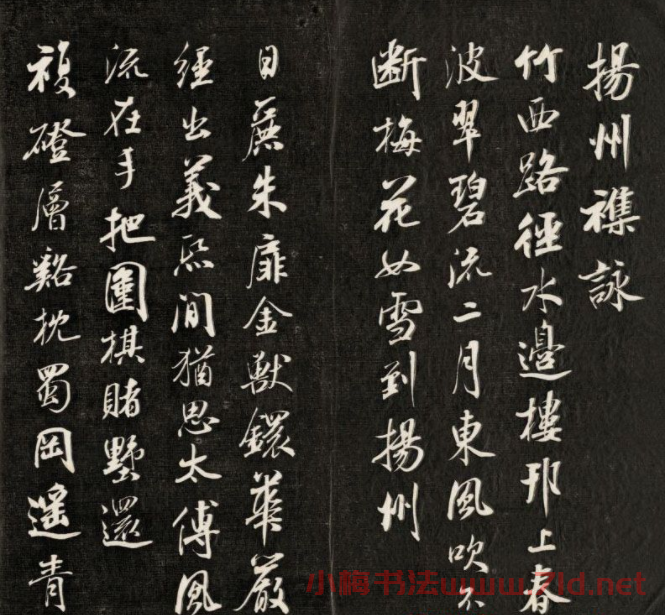 揚州襍詠
竹西路徑水邊樓邗上春
波翠碧流二月東風吹不
断梅花如雪到揚州
日麗朱扉金獸鐶華嚴
經出義熙間猶思太傅風
流在手把圍棋賭墅還
複磴層谿枕蜀岡遥青
小梅书法www.7ld.net